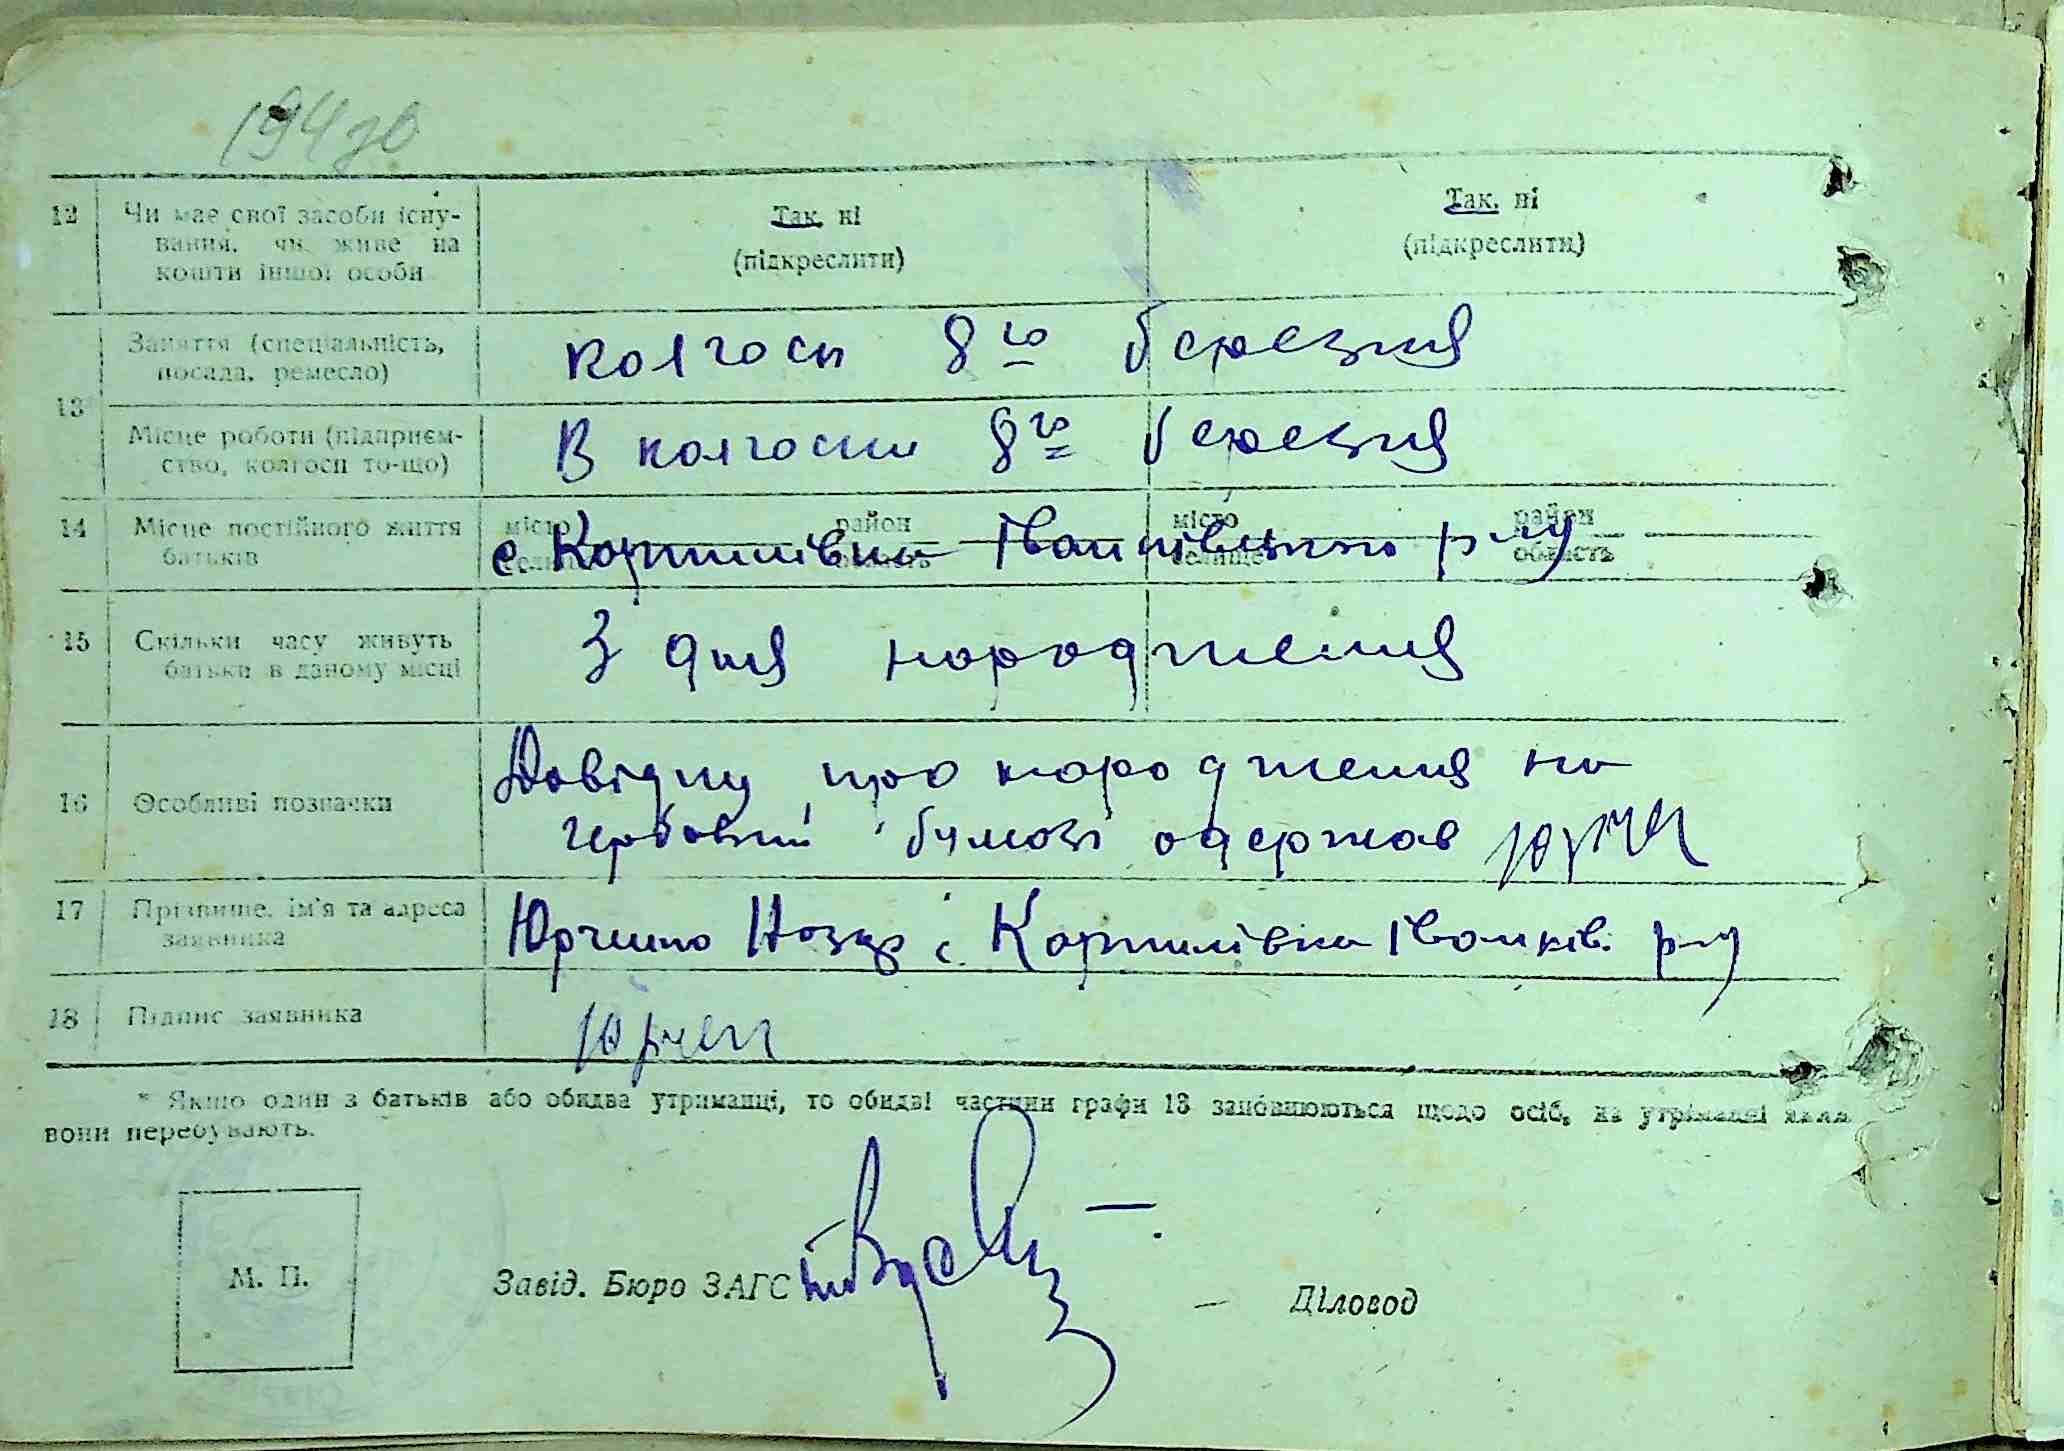 12 Чи має свої засоби існу-
вання, чи живе на
кошти іншої особи
Так, ні
(підкреслити)
Так, ні
(підкреслити)
13 Заняття (спеціальність,
посада, ремесло)
колгосп 8го березня
Місце роботи (підприєм-
ство, колгосп то-що)
В колгоспи 8го березня
14 Місце постійного життя
батьків
місто район місто район
селище область селище область
с Коропилівка Іванківського р-ну
15 Скільки часу живуть
батьки в даному місці
З дня народження
16 Особливі позначки
Довідку про народження на
гербовій бумозі одержав Юрчен
17 Прізвище, ім'я та адреса
заявника
Юрченко Назар с. Коропилівка Іванків. р-ну
18 Підпис заявника
Юрчен
* Якщо один з батьків або обидва утриманці, то обидві частини графи 13 заповнюються щодо осіб, на утриманні яких
вони перебувають.
М. П.
Завід. Бюро ЗАГС
Діловод